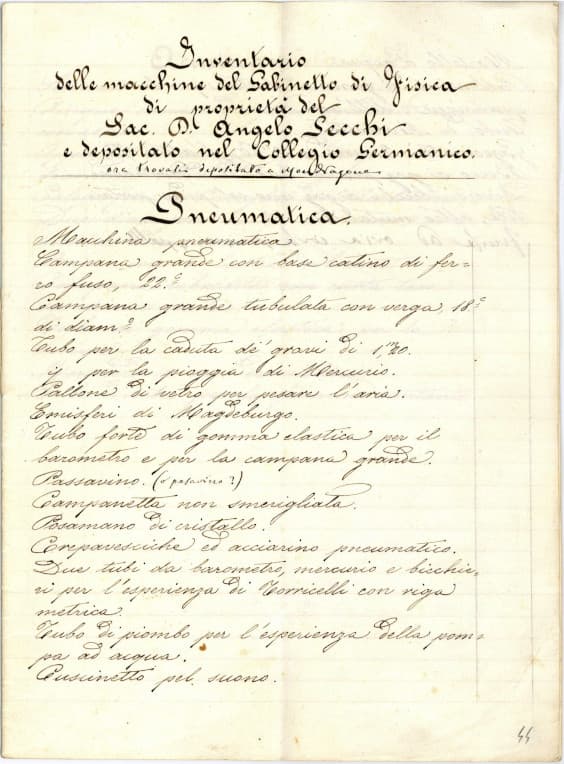 Inventario
delle macchine del Gabinetto di Fisica
di proprietà del
Sac. D. Angelo Secchi
e depositato nel Collegio Germanico.
ora trovasi depositato a Mondragone
Pneumatica.
Macchina pneumatica
Campana grande con base catino di fer-
ro fuso, 22.c
Campana grande tubulata con verga, 18.c
di diam.o
Tubo per la caduta de' gravi di 1,m20.
ɏ per la pioggia di Mercurio.
Pallone di vetro per pesare l'aria.
Emisferi di Magdeburgo.
Tubo forte di gomma elastica per il
barometro e per la campana grande.
Passavino. (o posavino?)
Campanetta non smerigliata.
Posamano di cristallo.
Crepavesciche ed acciarino pneumatico.
Due tubi da barometro, mercurio e bicchie-
ri per l'esperienza di Torricelli con riga
metrica.
Tubo di piombo per l'esperienza della pom-
pa ad acqua.
Cuscinetto pel suono.
44